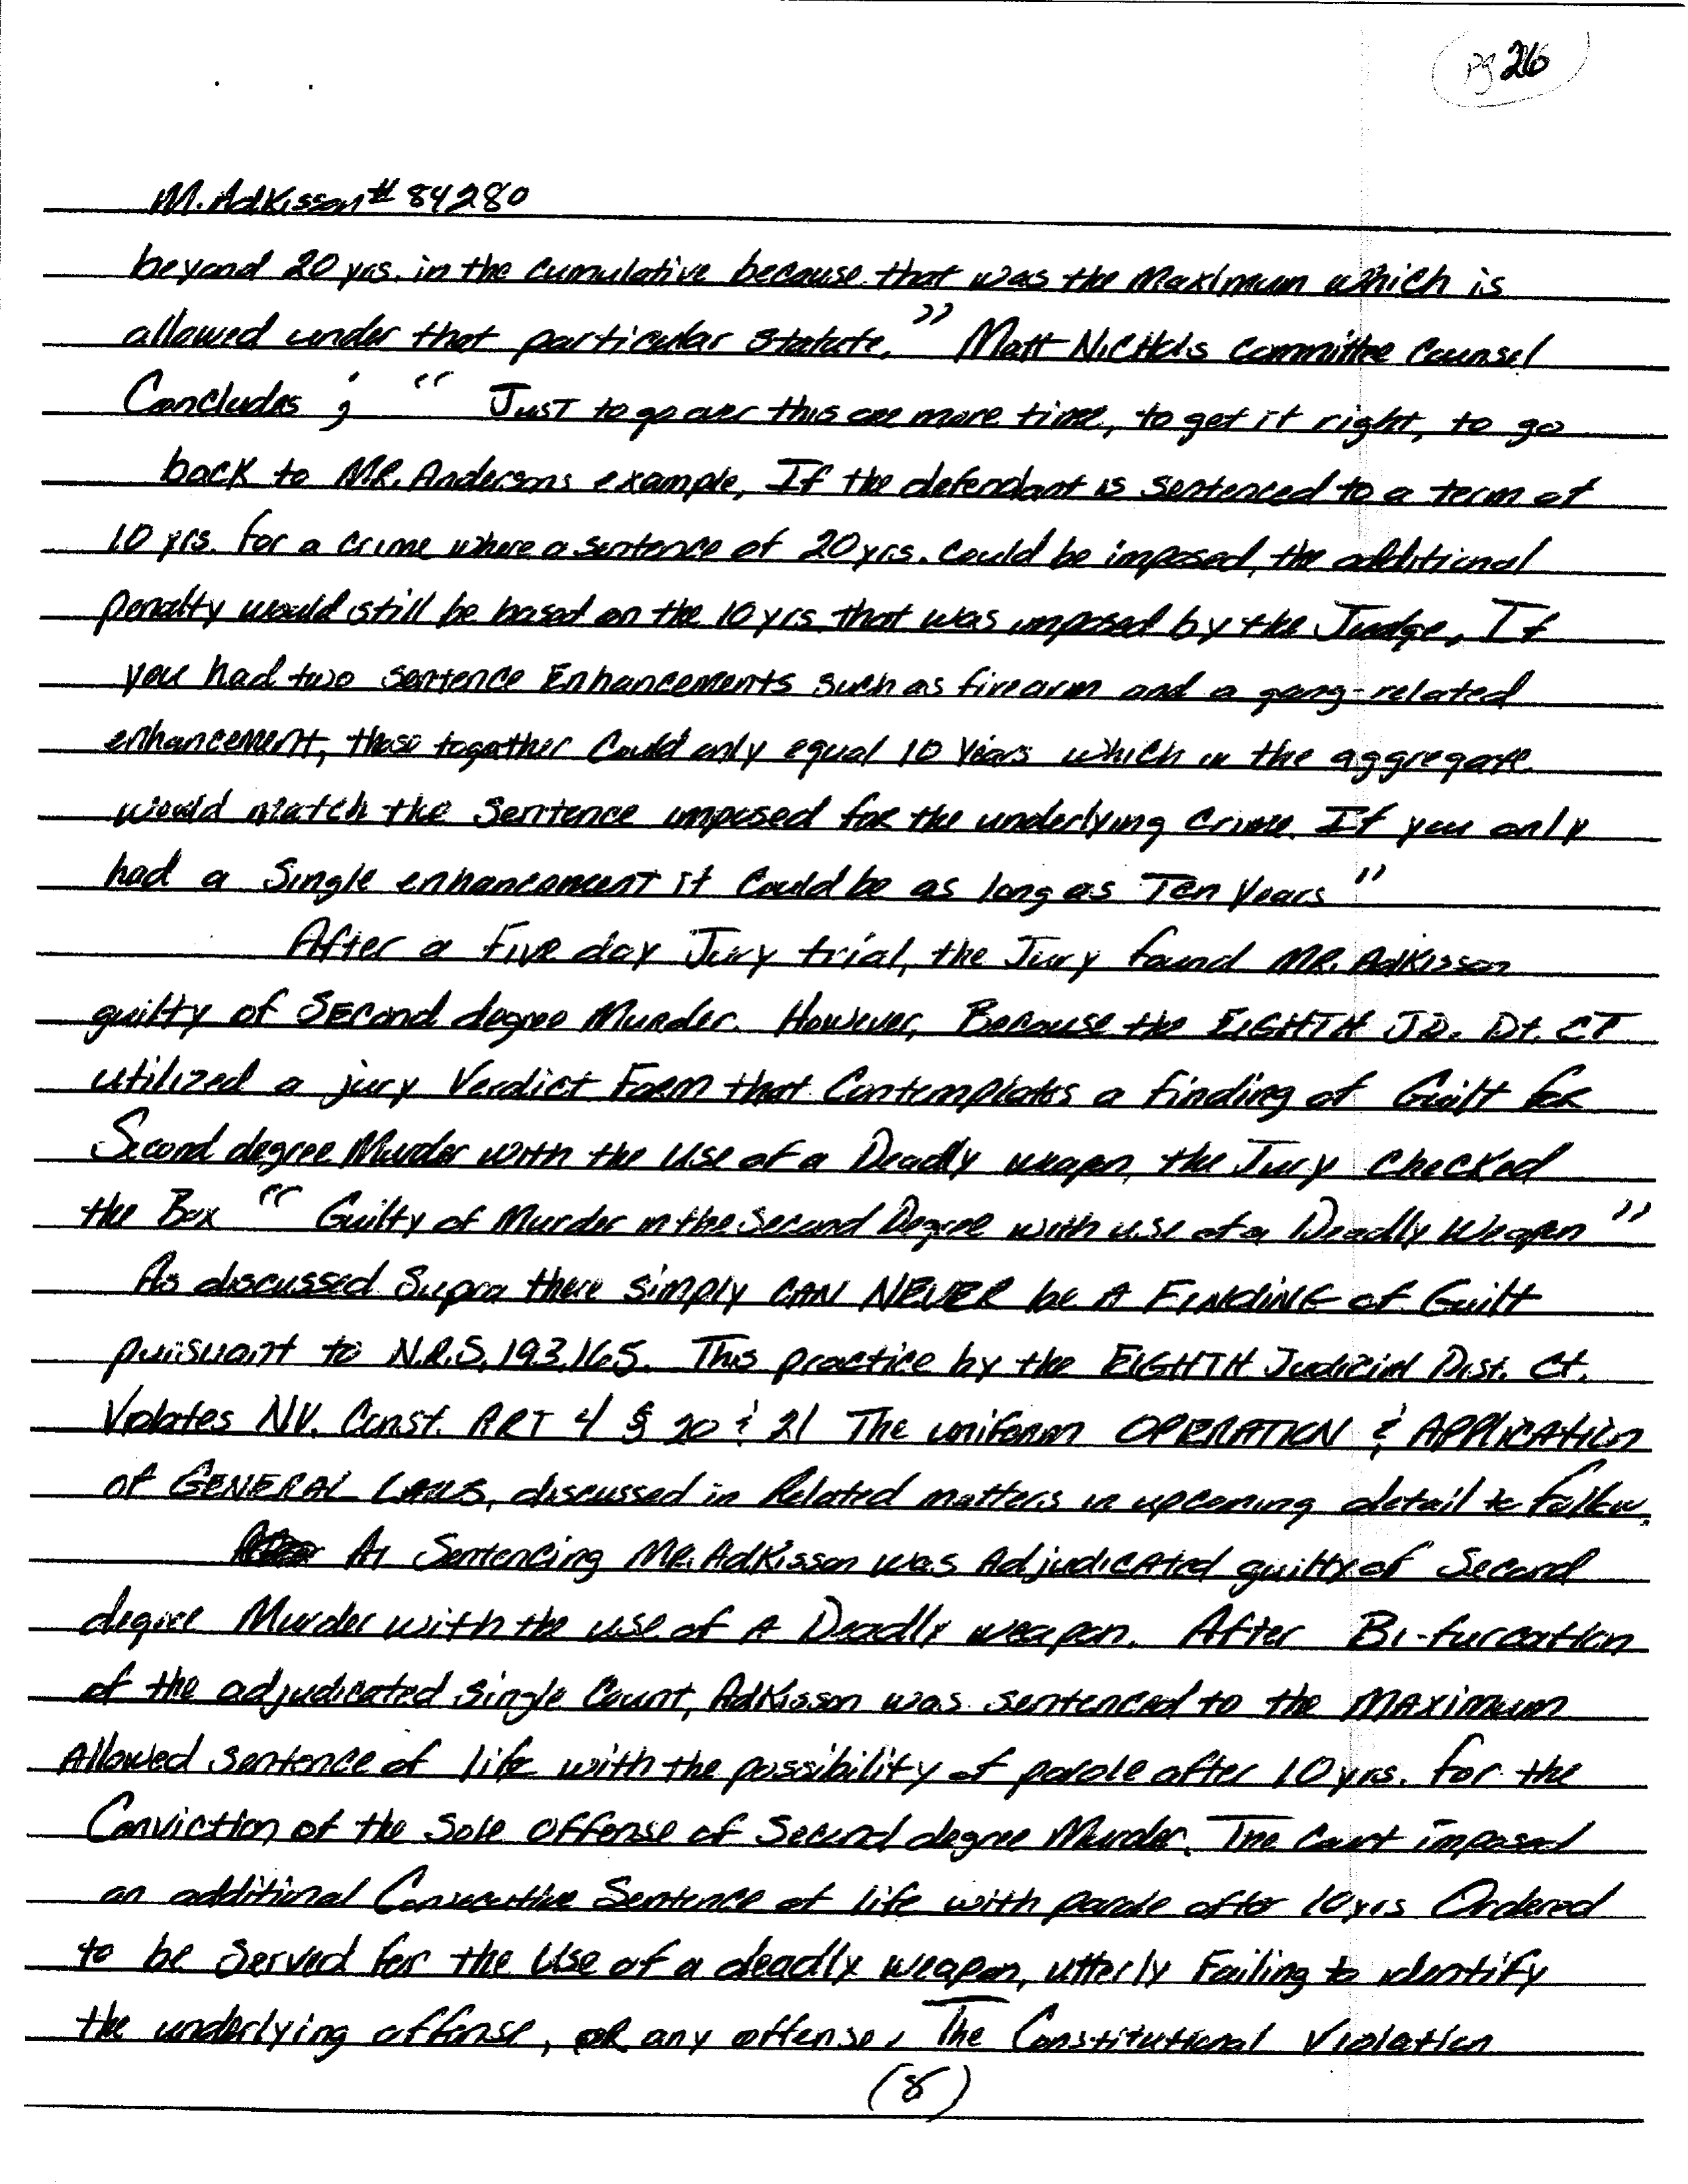 pg 26
M. Adkisson # 84280
beyond 20 yrs. in the cumulative because that was the Maximum which is
allowed under that particular statute." Matt Nichols committee Counsel
Concludes ; " Just to go over this one more time, to get it right, to go
back to MR. Andersons example, If the defendant is sentenced to a term of
10 yrs. for a crime where a sentence of 20 yrs. could be imposed, the additional
penalty would still be based on the 10 yrs that was imposed by the Judge, If
you had two sentence Enhancements such as firearm and a gang-related
enhancement, those together Could only equal 10 Years which in the aggregate
would match the Sentence imposed for the underlying Crime. If you only
had a Single enhancement it Could be as long as Ten Years"
After a Five day Jury trial, the Jury found MR. Adkisson
guilty of Second degree Murder. However, Because the EIGHTH JD. Dt. CT
utilized a jury Verdict Form that Contemplates a finding of Guilt for
Second degree Murder with the Use of a Deadly weapon, the Jury Checked
the Box " Guilty of Murder in the Second Degree with use of a Deadly Weapon "
As discussed Supra there simply CAN NEVER be A FINDING of Guilt
pursuant to N.R.S. 193.165. This practice by the EIGHTH Judicial Dist. Ct.
Violates NV. Const. ART 4 § 20 & 21 The uniform OPERATION & APPLICATION
of GENERAL LAWS, discussed in Related matters in upcoming detail to follow.
At Sentencing MR. Adkisson was Adjudicated guilty of Second
degree Murder with the use of A Deadly weapon. After Bi-furcation
of the adjudicated single Count, Adkisson was sentenced to the MAXIMUM
Allowed Sentence of life with the possibility of parole after 10 yrs. for the
Conviction of the Sole Offense of Second degree Murder. The Court imposed
an additional Consecutive Sentence of life with parole after 10 yrs Ordered
to be Served for the Use of a deadly weapon, utterly Failing to identify
the underlying offense, OR any offense, The Constitutional Violation
(8)